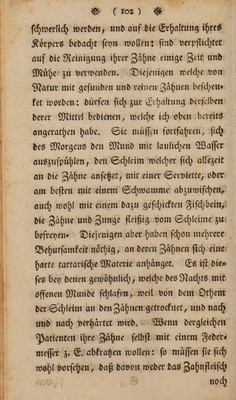 ❉ ( 102 ) ❉
schwerlich werden, und auf die Erhaltung ihres
Körpers bedacht seyn wollen: sind verpflichtet
auf die Reinigung ihrer Zähne einige Zeit und
Mühe zu verwenden. Diejenigen welche von
Natur mit gesunden und reinen Zähnen beschen-
ket worden: dürfen sich zur Erhaltung derselben
derer Mittel bedienen, welche ich oben bereits
angerathen habe. Sie müssen fortfahren, sich
des Morgens den Mund mit laulichen Wasser
auszuspühlen, den Schleim welcher sich allezeit
an die Zähne ansetzet, mit einer Serviette, oder
am besten mit einem Schwamme abzuwischen,
auch wohl mit einem dazu geschickten Fischbein,
die Zähne und Zunge fleißig vom Schleime zu
befreyen. Diejenigen aber haben schon mehrere
Behutsamkeit nöthig, an deren Zähnen sich eine
harte tartarische Materie anhänget. Es ist die-
ses bey denen gewöhnlich, welche des Nachts mit
offenen Munde schlafen, weil von dem Othem
der Schleim an den Zähnen getrocknet, und nach
und nach verhärtet wird. Wenn dergleichen
Patienten ihre Zähne selbst mit einem Feder-
messer z. E. abkratzen wollen: so müssen sie sich
wohl vorsehen, daß davon weder das Zahnfleisch
noch